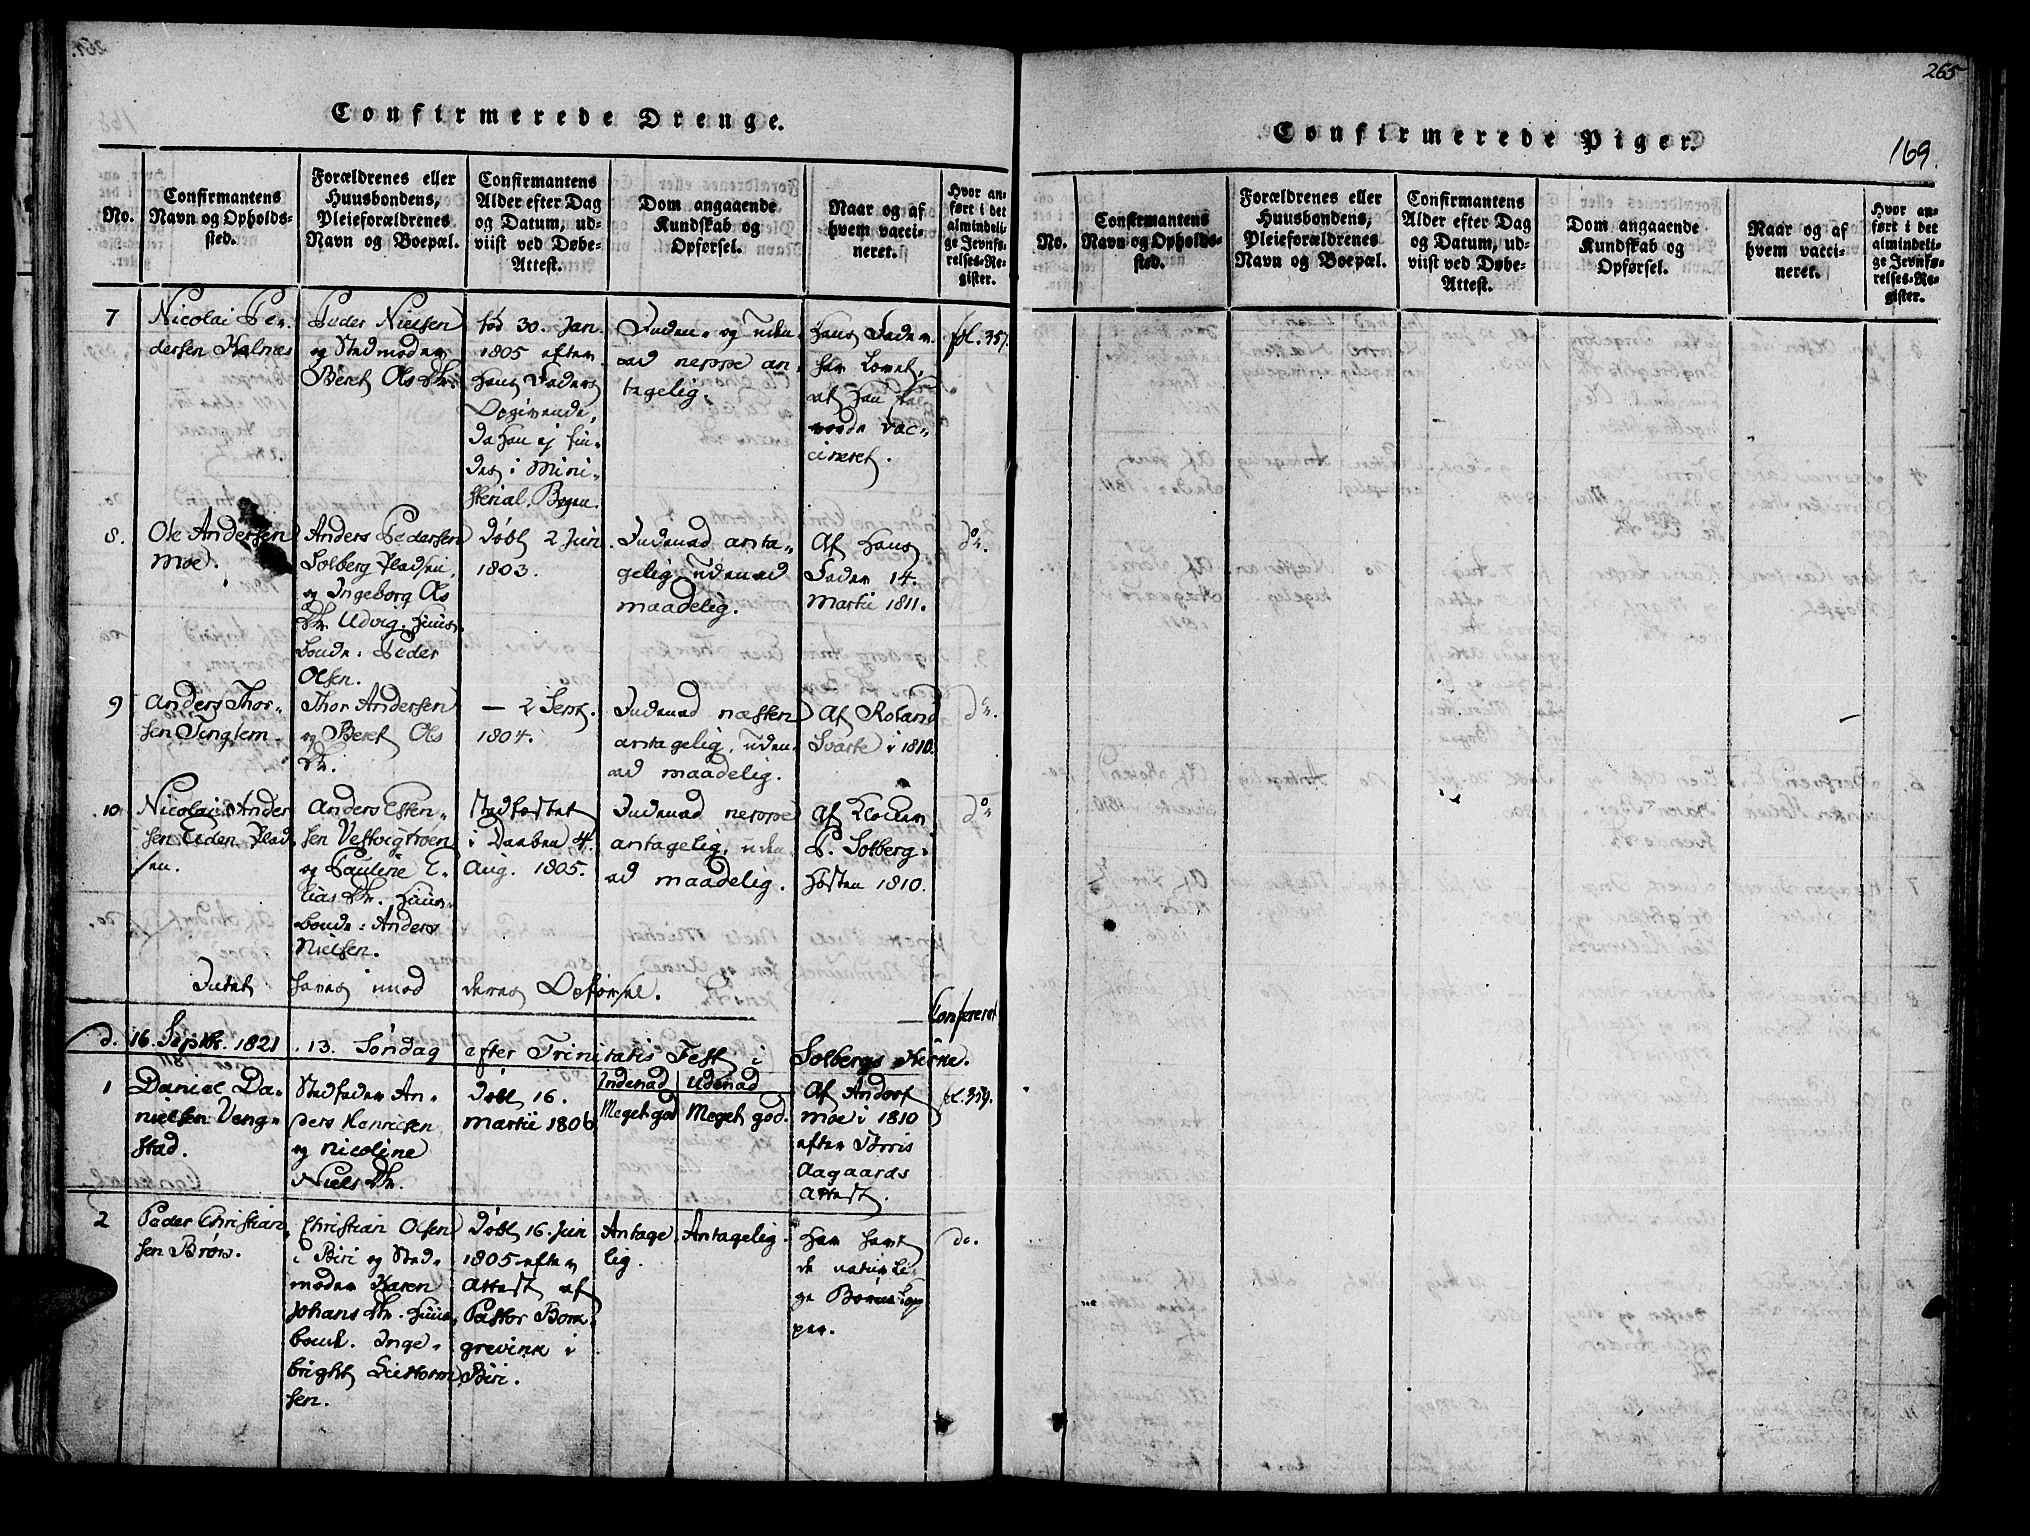 Confirmerede Drenge.
No.
Confirmantens
Navn og Opholds-
sted.
Forældrenes eller
Huusbondens,
Pleieforældrenes
Navn og Boepæl.
Confirmantens
Alder efter Dag
og Datum, ud-
viist ved Døbe-
Attest.
Dom angaaende
Kundskab og
Opførsel.
Naar og af
hvem vacci-
neret.
Hvor an-
ført i det
almindeli-
ge Jevnfø-
relses-Re-
gister.
7
Nicolai Pe-
dersen Halnæs
Peder Nielsen
og Stedmoder
Beret Ols Dtr.
fød 30. Jan.
1805 efter
Hans Faders
Opgivende,
da Han ej fin-
des i Mini-
sterial Bogen.
Inden- og uden-
ad neppe an-
tagelig.
Hans Fader
har lovet,
at Han skal
vorde vac-
cineret.
fol. 357.
8.
Ole Andersen
Moe.
Anders Pedersen
Solberg Pladsen
og Ingeborg Ols
Dtr. Udvig. Huus-
bonde: Peder
Olsen.
Døbt 2 Juni
1803.
Indenad anta-
gelig, udenad
maadelig.
Af Hans
Fader 14.
Martii 1811.
do.
9
Anders Thor-
sen Tinglem.
Thor Andersen
og Beret Ols
Dtr.
— 2 Sept.
1804.
Indenad næsten
antagelig, uden-
ad maadelig.
Af Roland
Svarte i 1810.
do.
10
Nicolai Ander
sen Uden Plad
sen.
Anders Esten-
sen Vestvigtroen
og Pauline E-
lias Dtr. Huus-
bonde: Anders
Nielsen.
Stadfæstet
i Daaben 4.
Aug. 1805.
Indenad neppe
antagelig, uden-
ad maadelig.
Af Klokker
P. Solberg
Høsten 1810.
do.
Intet haves imod deres Opførsel.
Confereret
d. 16. Septbr. 1821. 13. Søndag efter Trinitatis Fest i Solbergs Kirke.
1
Daniel Da-
nielsen Veng-
stad.
Stedfader An-
ders Henricsen
og Nicoline
Niels Dtr.
Døbt 16.
Martii 1806
Indenad
Meget god
Udenad
Meget god.
Af Andor
Moe i 1810
efter Jörris
Aagaards
Attest.
fol. 359.
2
Peder Christian
sen Brøm.
Christian Olsen
i Biri og Sted-
moder Karen
Johans Dtr. Huus-
bond. Inge-
bright
sen.
Døbt 16. Juni
1805 efter
Attest af
Pastor Born-
grevink i
Biri.
Antage
lig.
Antagelig.
Har havt
de naturli-
ge Børnekop
per.
do.
265
169.
Confirmerede Piger.
No.
Confirmantens
Navn og Opholds-
sted.
Forældrenes eller
Huusbondens,
Pleieforældrenes
Navn og Boepæl.
Confirmantens
Alder efter Dag
og Datum, ud-
viist ved Døbe-
Attest.
Dom angaaende
Kundskab og
Opførsel.
Naar og af
hvem vacci-
neret.
Hvor an-
ført i det
almindeli-
ge Jevnfø-
relses-Re-
gister.